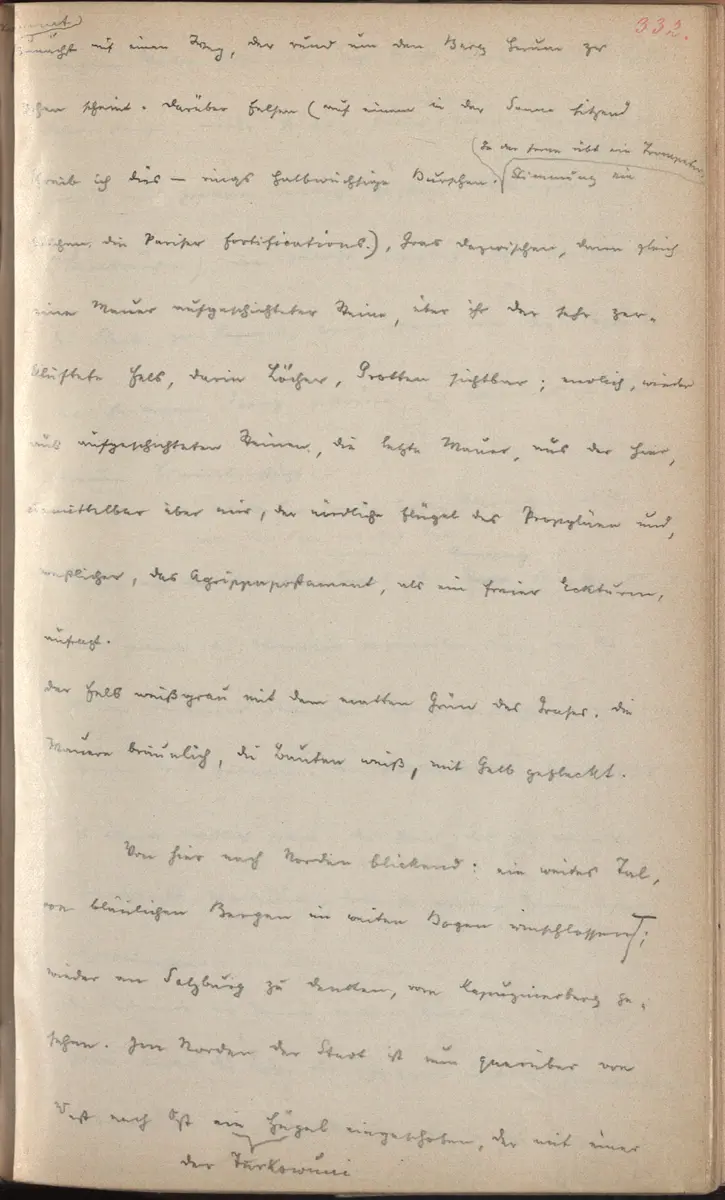 332.
zunächst auf einen Weg, der rund um den Berg herum zu
gehen scheint. Darüber Felsen (auf einem in der Sonne sitzend
(In der Ferne übt ein Trompeter.
schreib ich dies – rings halbwüchsige Burschen. Stimmung ein
bischen: die Pariser Fortifications.), Gras dazwischen, dann gleich
eine Mauer aufgeschichteter Steine, über ihr der sehr zer-
klüftete Fels, darin Löcher, Grotten sichtbar; endlich, wieder
aus aufgeschichteten Steinen, die letzte Mauer, aus der hier,
unmittelbar über mir, der nördliche Flügel der Propyläen und,
westlicher, das Agrippapostament, als ein freier Eckturm,
aufragt.
Der Fels weißgrau mit dem matten Grün des Grases. Die
Mauern bräunlich, die Bauten weiß, mit Gelb gefleckt.
Von hier nach Norden blickend: ein weites Tal,
von bläulichen Bergen im weiten Bogen umschlossen;
wieder an Salzburg zu denken, vom Kapuzinerberg ge-
sehen. Im Norden der Stadt ist nun querüber von
West nach Ost ein Hügel eingeschoben, der mit einer
der Turkowuni